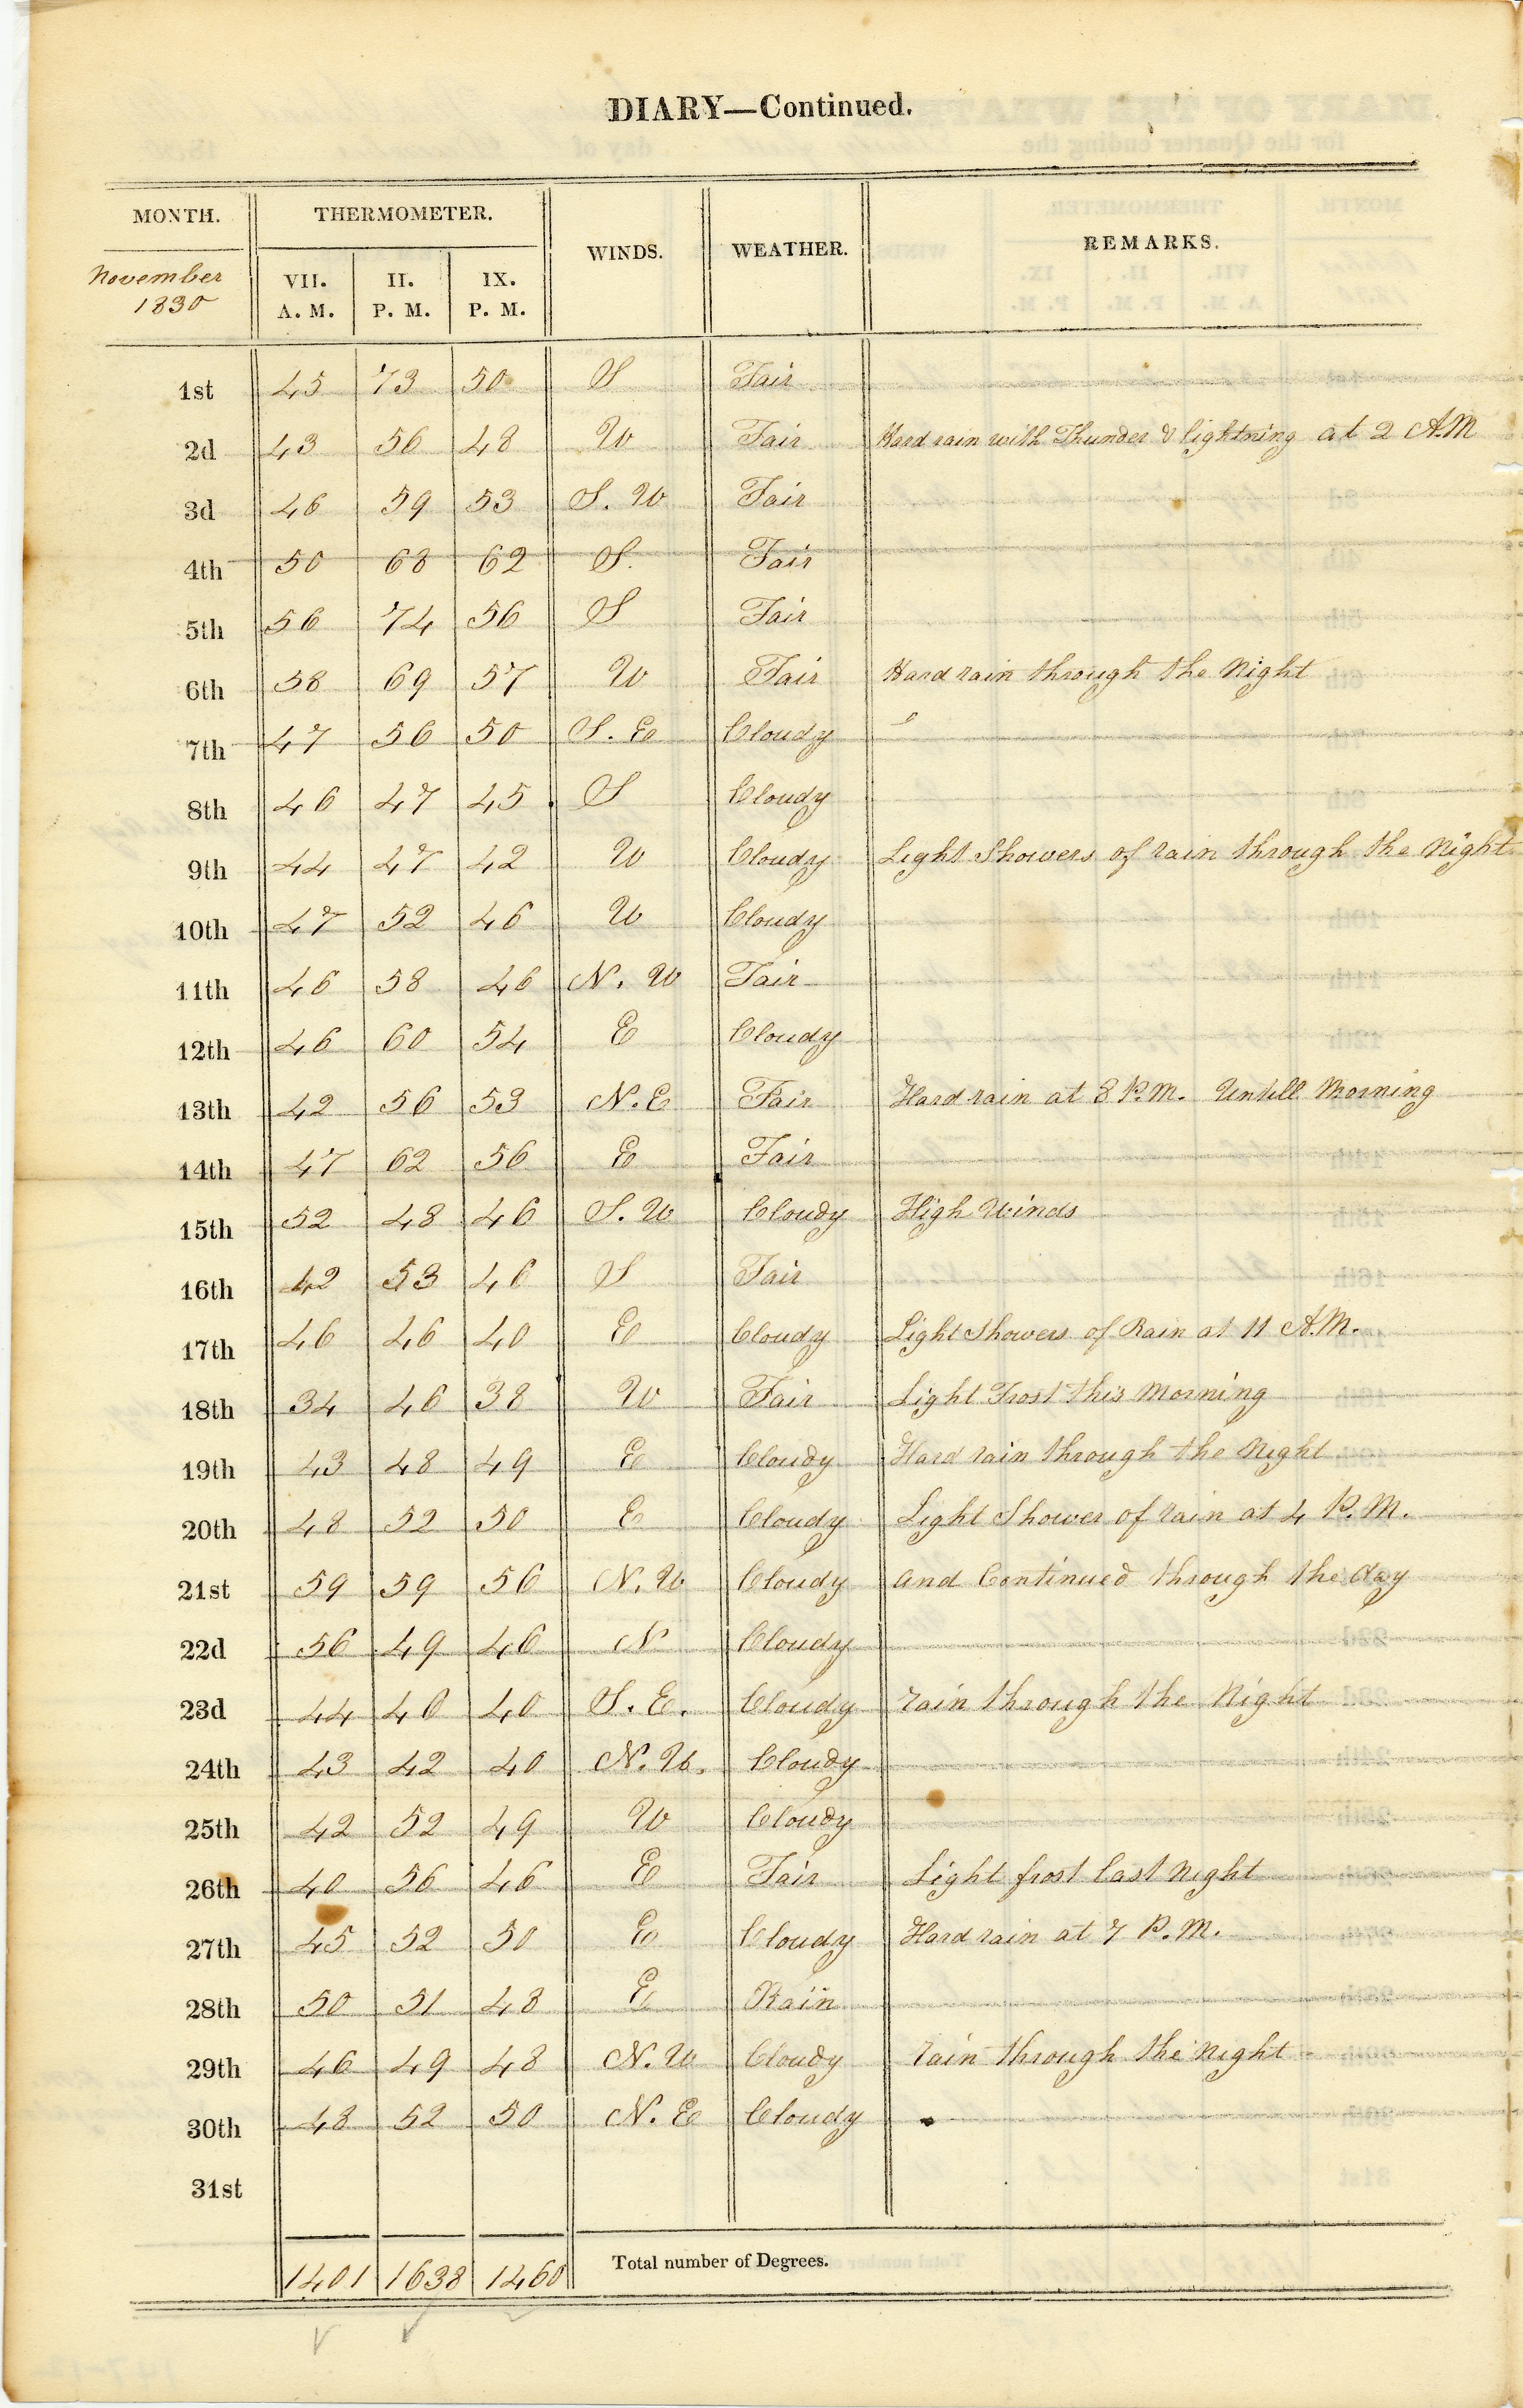 DIARY—Continued.
MONTH. THERMOMETER. WINDS. WEATHER. REMARKS.
November 1830 VII. A. M. II. P. M. IX. P. M.
1st 45 73 50 S Fair
2d 43 56 48 W Fair Hard rain with Thunder & lightning at 2 A.M
3d 46 59 53 S. W Fair
4th 50 68 62 S. Fair
5th 56 74 56 S Fair
6th 58 69 57 W Fair Hard rain through the Night
7th 47 56 50 S. E Cloudy
8th 46 47 45 S Cloudy
9th 44 47 42 W Cloudy Light Showers of rain through the Night
10th 47 52 46 W Cloudy
11th 46 58 46 N. W Fair
12th 46 60 54 E Cloudy
13th 42 56 53 N. E Fair Hard rain at 8 P.M. Untill Morning
14th 47 62 56 E Fair
15th 52 48 46 S. W Cloudy High Winds
16th 42 53 46 S Fair
17th 46 46 40 E Cloudy Light Showers of Rain at 11 A.M.
18th 34 46 38 W Fair Light Frost this Morning
19th 43 48 49 E Cloudy Hard rain through the Night
20th 48 52 50 E Cloudy Light Shower of rain at 4 P.M.
21st 59 59 56 N. W Cloudy and Continued through the day
22d 56 49 46 N Cloudy
23d 44 40 40 S. E. Cloudy rain through the Night
24th 43 42 40 N. W. Cloudy
25th 42 52 49 W Cloudy
26th 40 56 46 E Fair Light frost last Night
27th 45 52 50 E Cloudy Hard rain at 7 P.M.
28th 50 51 48 E Rain
29th 46 49 48 N. W Cloudy rain through the Night
30th 48 52 50 N. E Cloudy
31st
1401 1638 1460 Total number of Degrees.